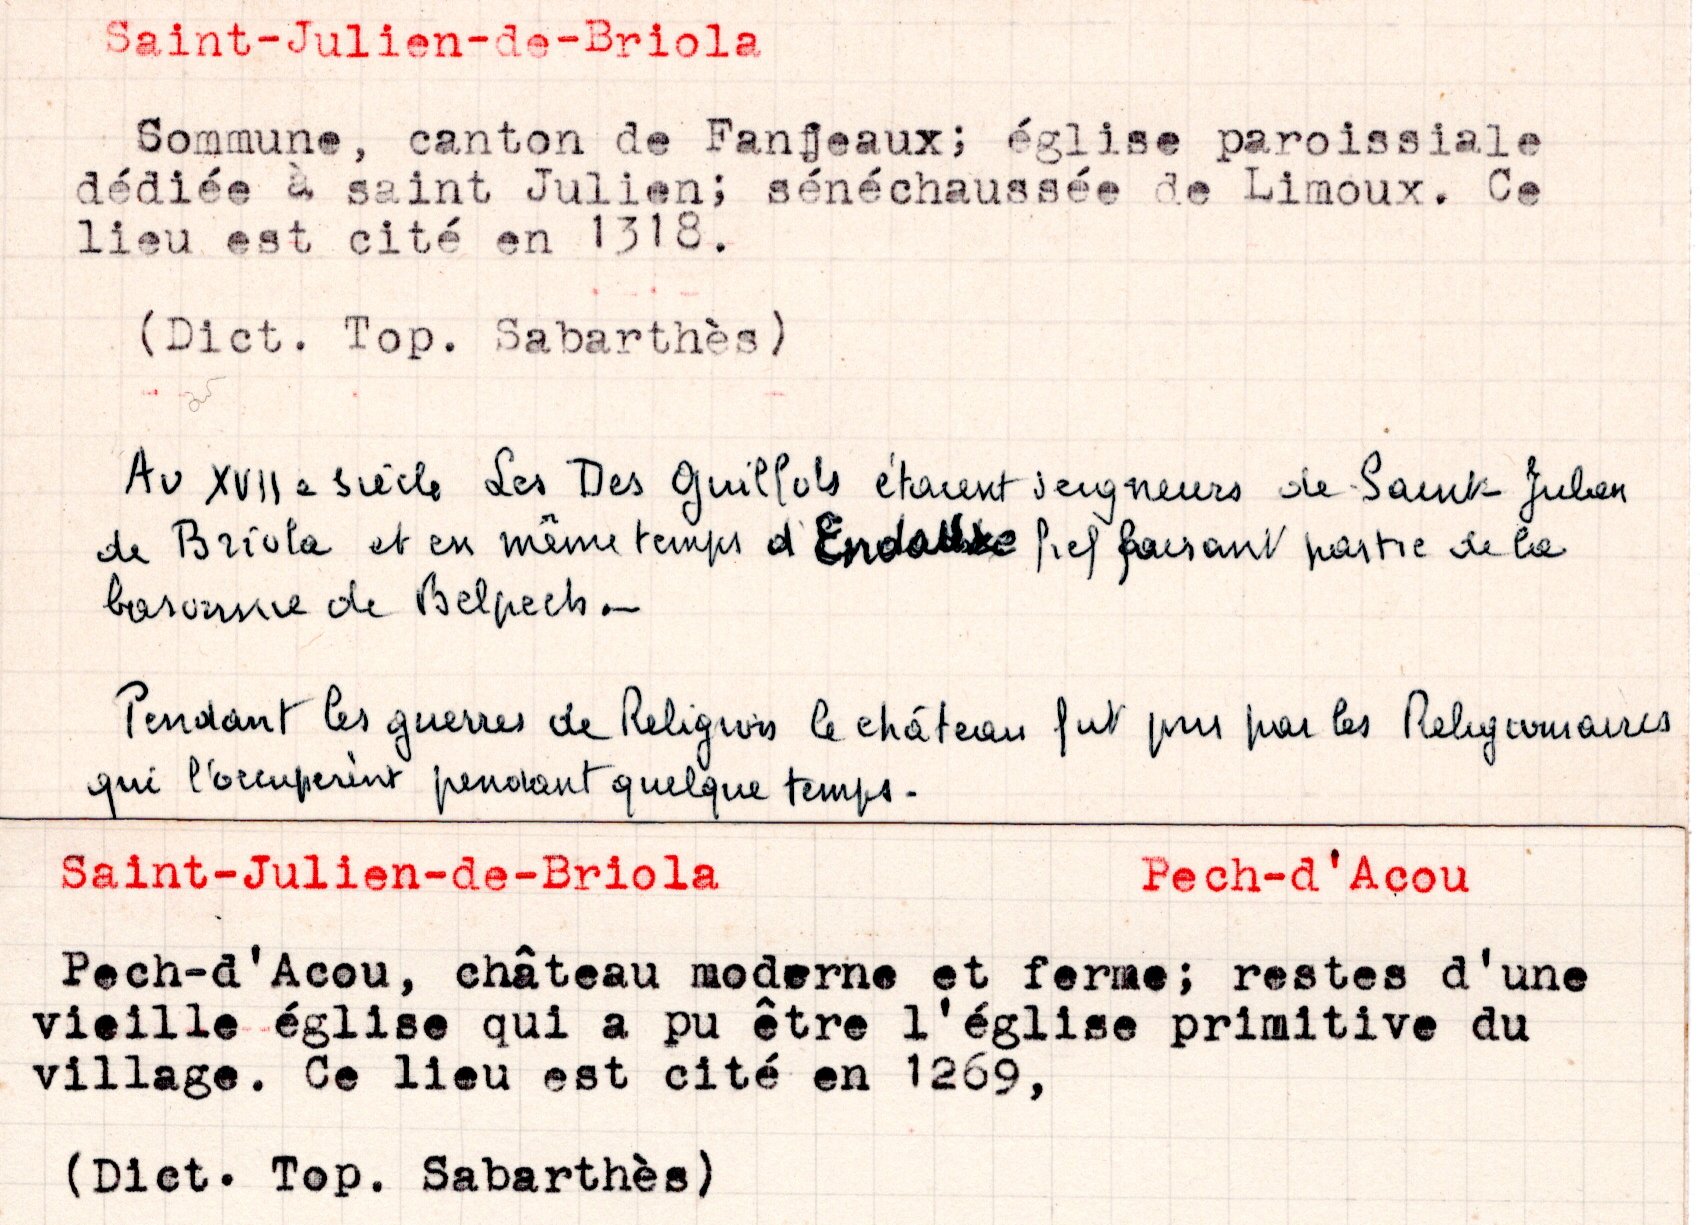 Saint-Julien-de-Briola
Sommune, canton de Fanjeaux; église paroissiale
dédiée à saint Julien; sénéchaussée de Limoux. Ce
lieu est cité en 1318.
(Dict. Top. Sabarthès)
Au XVIIe siècle Les Des Guillots étaient seigneurs de Saint Julien
de Briola et en même temps d' fief faisant partie de la
baronnie de Belpech.-
Pendant les guerres de Religion le château fut pris par les Religionaires
qui l'occupèrent pendant quelque temps.
Saint-Julien-de-Briola Pech-d'Acou
Pech-d'Acou, château moderne et ferme; restes d'une
vieille église qui a pu être l'église primitive du
village. Ce lieu est cité en 1269,
(Dict. Top. Sabarthès)